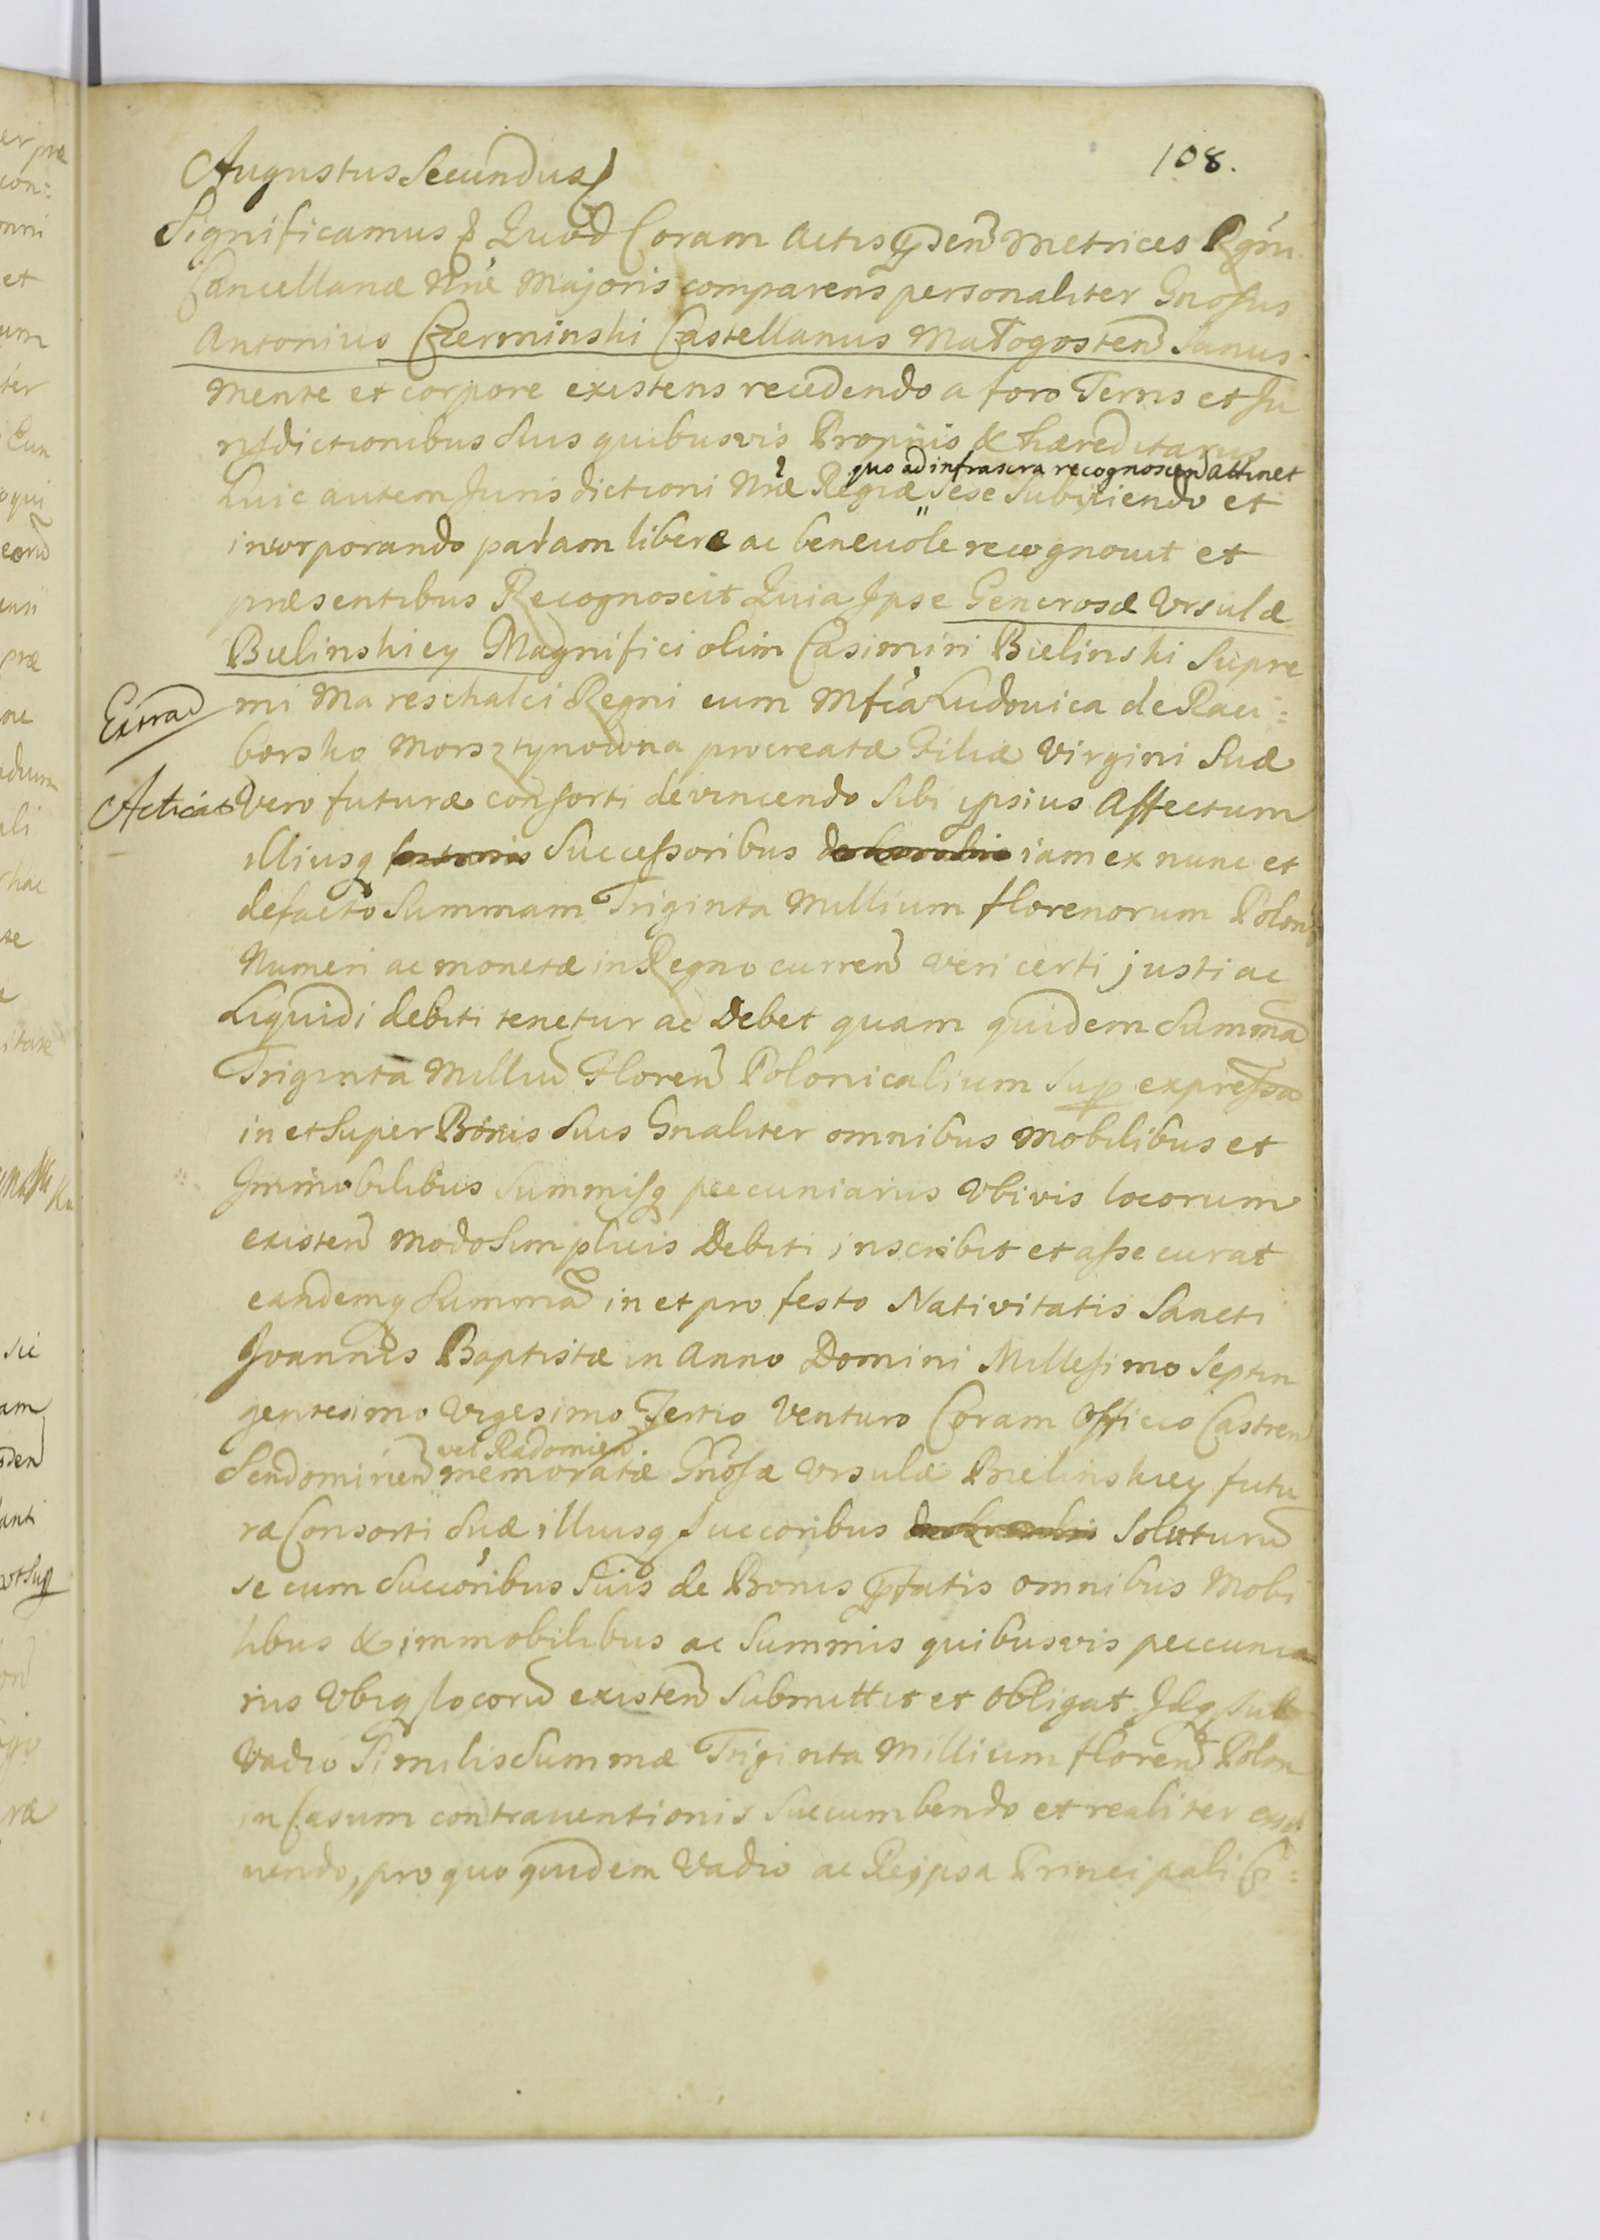 108.
Augustus Secundus
Significamus Quod Coram Actis pñden Metrices Rgni
Cancellariæ Nræ Majoris comparens personaliter Gnosus
Antonius Czerminski Castellanus Małogosten Sanus
mente et corpore existens recedendo a foro Terris et Ju
risdictionibus Suis quibusvis Proprijs & hæreditarijs
quo ad infrascra recognoscen attinet
huic autem Jurisdictioni Nræ Regiæ " sese Subijciendo et
incorporando palam libere ac beneuole recognouit et
præsentibus Recognoscit Quia Ipse Generosæ Vrsulæ
Bielinskiey Magnifici olim Casimiri Bielinski Supre
mi Mareschalci Regni cum Mfca Ludouica de Raci:
borsko Morsztynowna procreatæ Filiæ Virgini Suæ
Extrad
vero futuræ consorti devincendo Sibi ipsius Affectum
Acticat
illiusq Successoribus iam ex nunc et
defacto Summam Triginta Millium florenorum Polon
Numeri ac monetæ in Regno curren veri certi justi ac
Liquidi debiti tenetur ac Debet quam quidem Summa
Triginta Milliu Floren Polonicalium Sup expressa
in et Super Bonis Suis Gnaliter omnibus mobilibus et
Immobilibus Summisq peccuniarijs Vbivis locorum
existen modo Simplicis Debiti inscribit et assecurat
eandemq Summa in et pro festo Nativitatis Sancti
Joannis Baptistæ in Anno Domini Millesimo Septin
gentesimo Vigesimo Tertio Venturo Coram Officio Castren
vel Radomien
Sendomirien memoratæ Gnosæ Vrsulæ Bielinskiey futu
ræ Consorti Suæ illiusq Succoribus Soluturu
se cum Succoribus Suis de Bonis pfatis omnibus Mobi
libus & immobilibus ac Summis quibusvis peccunia
rijs Vbiq locoru existen Submittit et obligat Idq Sub
Vadio Similis Summæ Triginta Millium floren Polon
in Casum contrauentionis Succumbendo et realiter exsol
uendo, pro quo quidem Vadio ac Re ipsa Principali